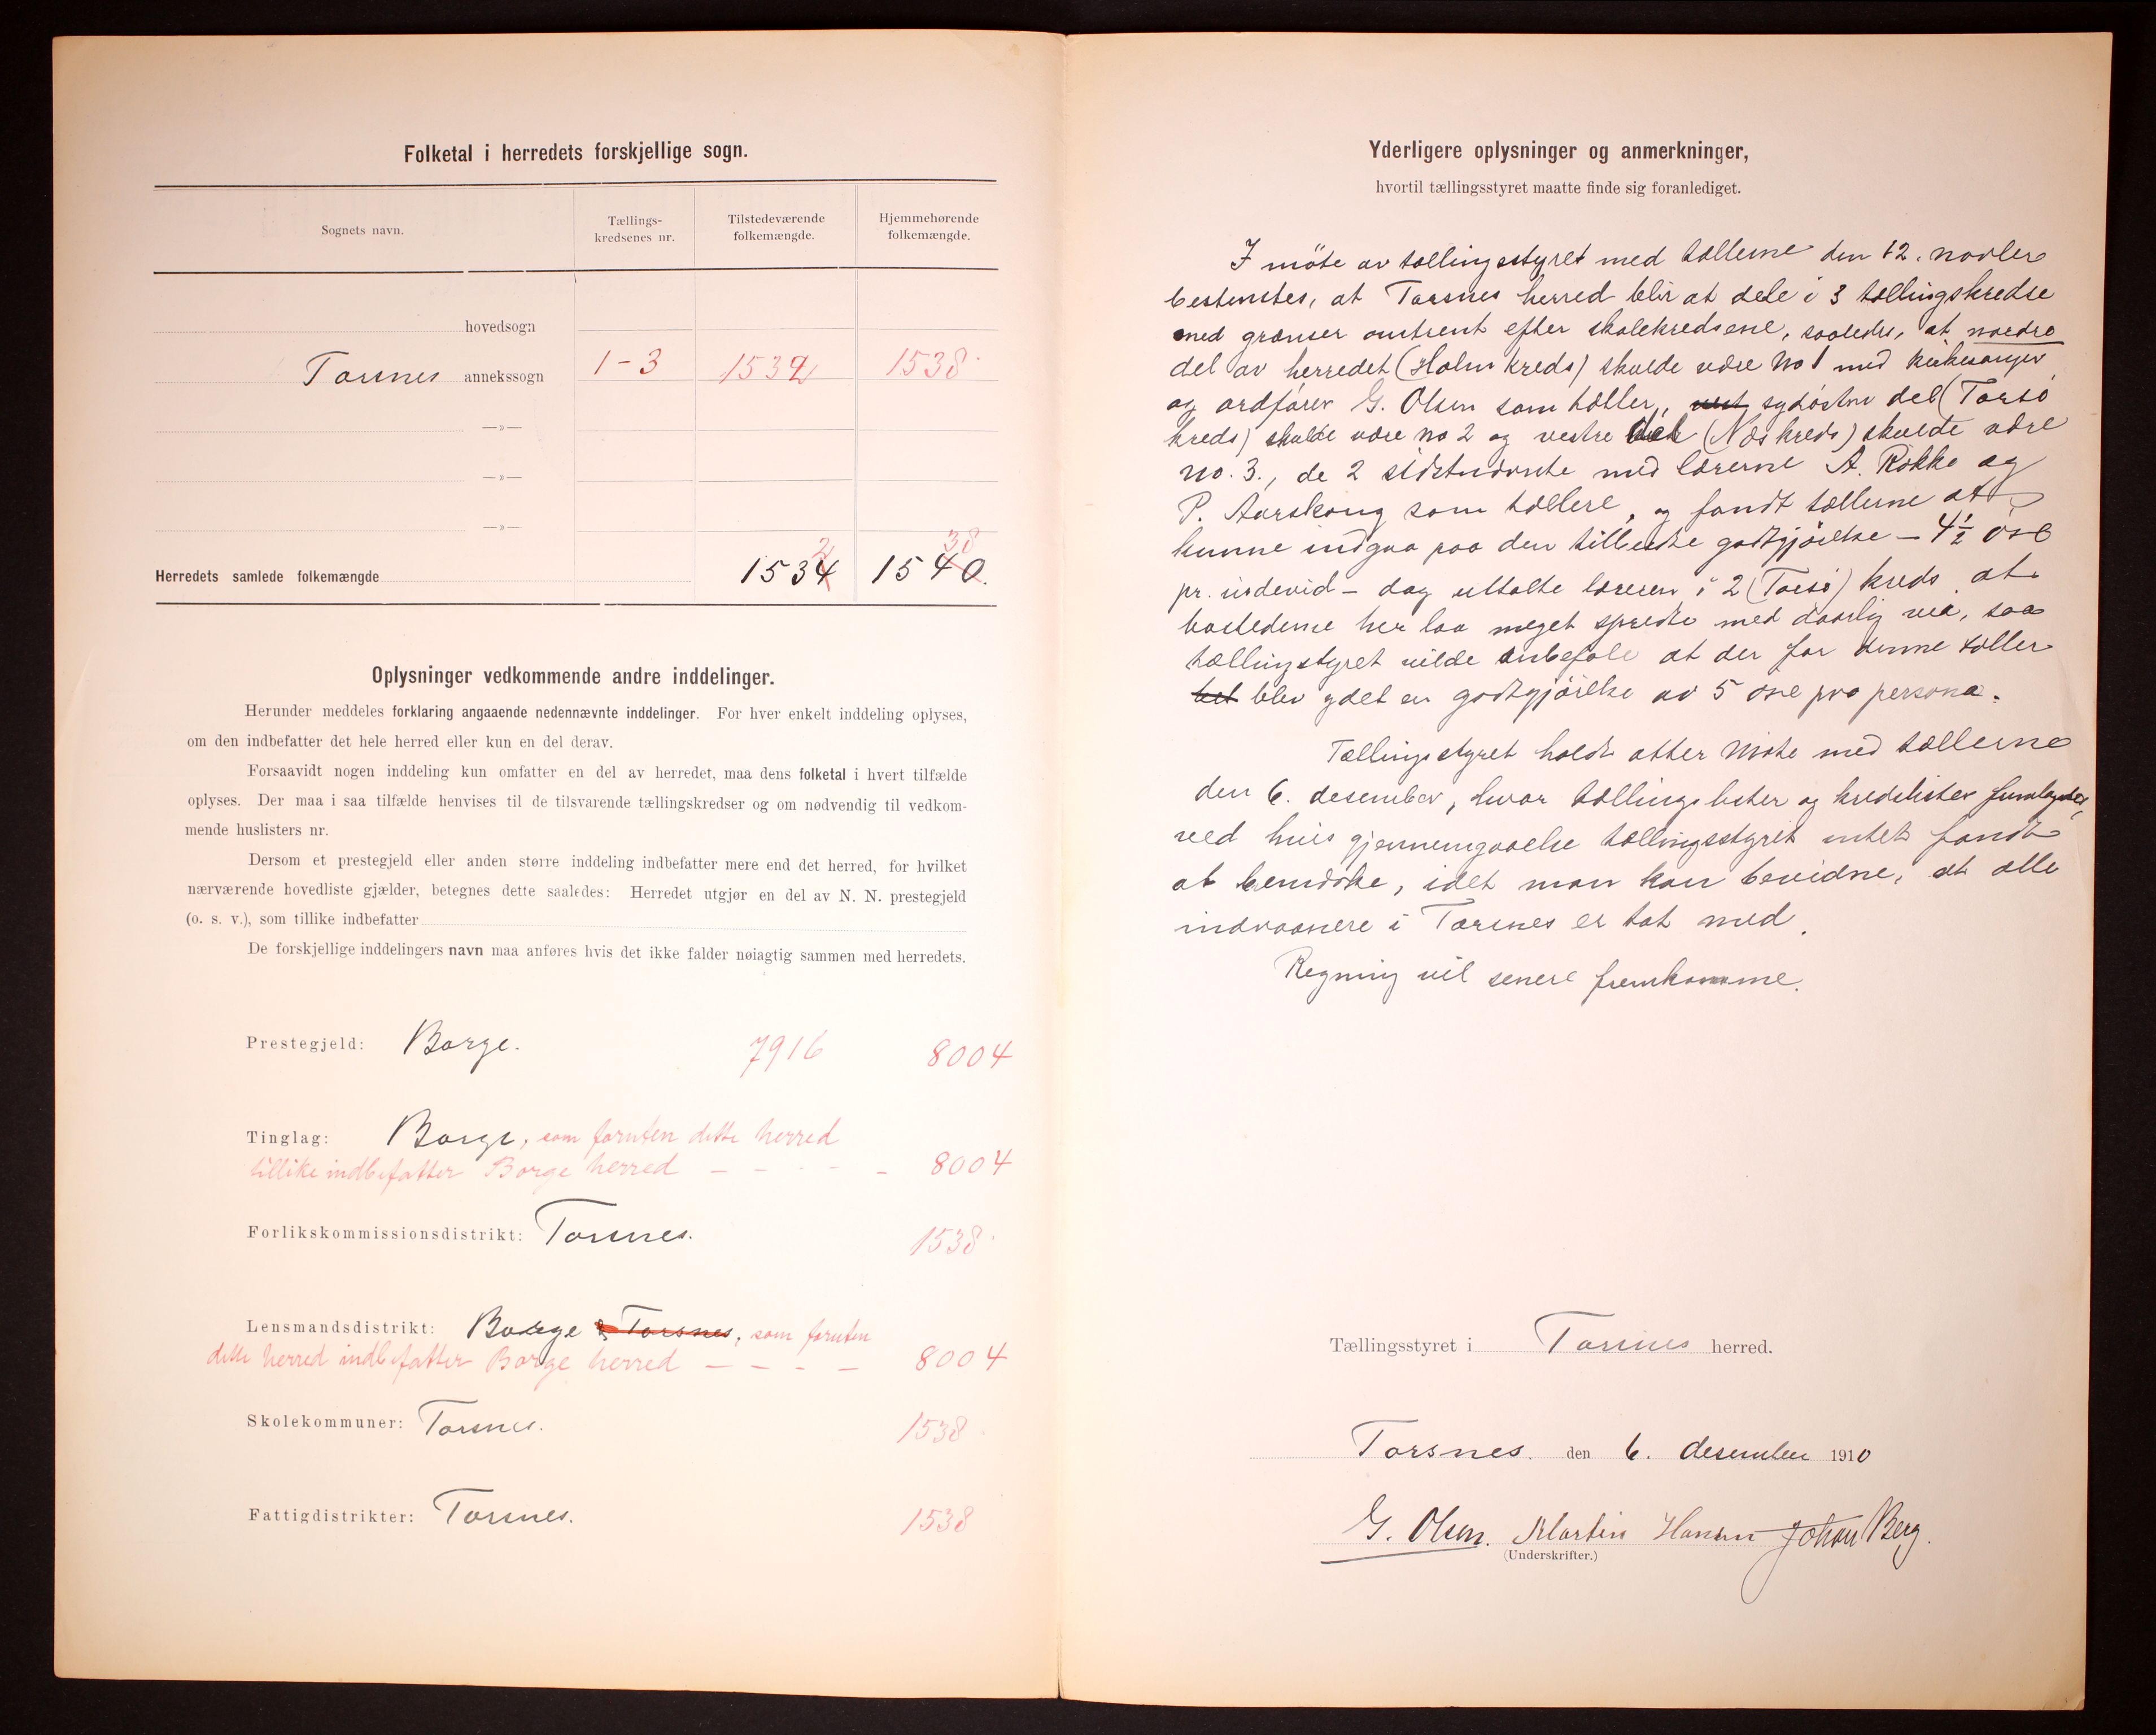 Folketal i herredets forskjellige sogn.
Sognets navn.
Tællings-
kredsenes nr.
Tilstedeværende
folkemængde.
Hjemmehørende
folkemængde.
hovedsogn
Torsnes annekssogn 1-3 1532 1538
—»—
—»—
—»—
2 38
Herredets samlede folkemængde 1534 1540.
Oplysninger vedkommende andre inddelinger.
Herunder meddeles forklaring angaaende nedennævnte inddelinger. For hver enkelt inddeling oplyses,
om den indbefatter det hele herred eller kun en del derav.
Forsaavidt nogen inddeling kun omfatter en del av herredet, maa dens folketal i hvert tilfælde
oplyses. Der maa i saa tilfælde henvises til de tilsvarende tællingskredser og om nødvendig til vedkom-
mende huslisters nr.
Dersom et prestegjeld eller anden større inddeling indbefatter mere end det herred, for hvilket
nærværende hovedliste gjælder, betegnes dette saaledes: Herredet utgjør en del av N. N. prestegjeld
(o. s. v.), som tillike indbefatter
De forskjellige inddelingers navn maa anføres hvis det ikke falder nøiagtig sammen med herredets.
Prestegjeld: Borge. 7916 8004
Tinglag: Borge, som foruten dette herred
tillike indbefatter Borge herred — — - - - 8004
Forlikskommissionsdistrikt: Torsnes. 1538
Lensmandsdistrikt: Borge & Torsnes, som foruten
dette herred indbefatter Borge herred — — - — 8004
Skolekommuner: Torsnes. 1538
Fattigdistrikter: Torsnes. 1538
Yderligere oplysninger og anmerkninger,
hvortil tællingsstyret maatte finde sig foranlediget.
I möte av tællingsstyret med tællerne den 12.
bestemtes, at Torsnes herred blir at dele i 3 tællingskredse
med grænser omtrent efter skolekredsene, saaledes, at nordre
del av herredet (Holm kreds) skulde være No 1 med kirkesanger
og ordfører G. Olsen som tæller, vest sydöstre del (Torsö
kreds) skulde være no 2 og vestre del (Næs kreds) skulde være
no. 3., de 2 sidstnævnte med lærerne A. Rokke og
P. Aarskoug som tællere, og fandt tællerne at
kunne indgaa paa den godtgjörelse — 4½ öre
pr. individ — dog uttalte læreren i 2 (Torsö) kreds at
bostederne her laa meget spredte med daarlig vei, saa
tællingstyret vilde anbefale at der for denne tæller
het blev ydet en godtgjörelse av 5 öre pro persona.
Tællingsstyret holdt atter möte med tællerne
den 6. desember, hvor tællingslister og kredslister fremlagdes,
ved hvis gjennemgaaelse tællingsstyret intet fandt
at bemærke, idet man kan bevidne, at alle
indvaanere i Torsnes er tat med.
Regning vil senere fremkomme.
Tællingsstyret i Torsnes herred.
Torsnes. den 6. desember 1910
G. Olsen. Martin Hansen Johan Berg.
(Underskrifter.)